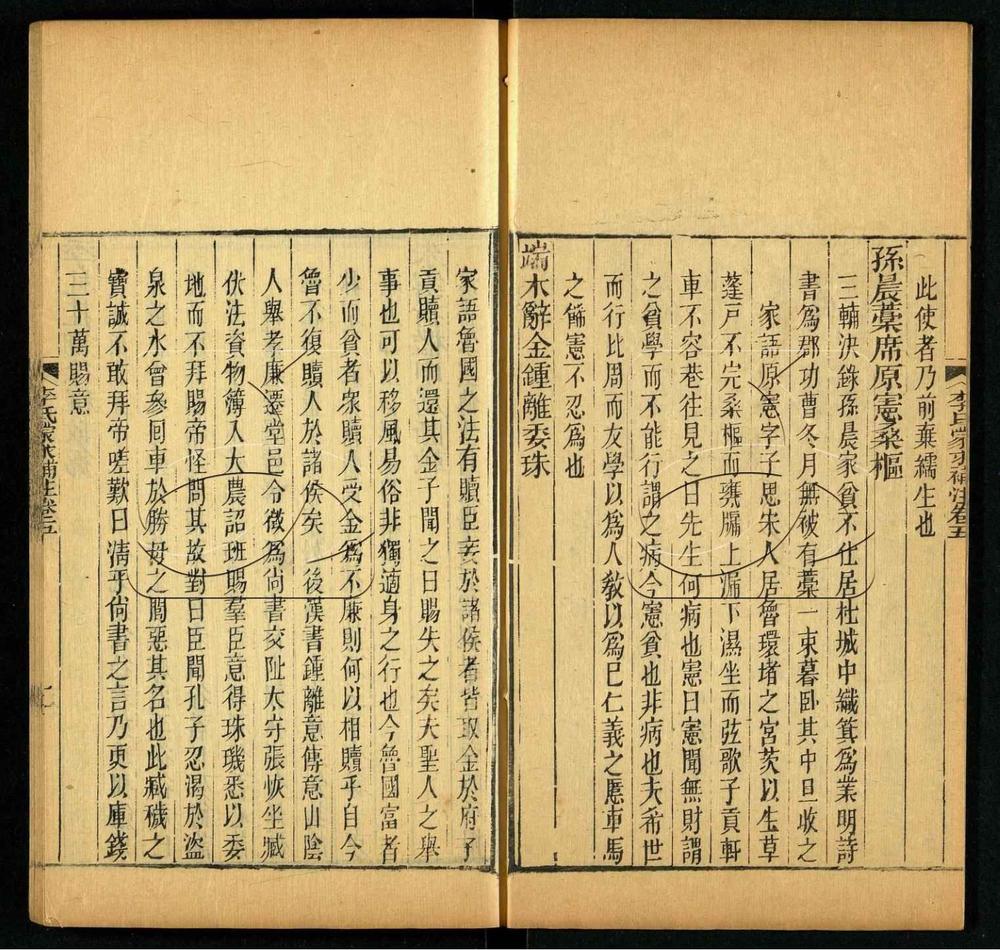 此使者乃前棄繻生也
孫晨藁席原憲桑樞
三輔決錄孫晨家貧不仕居杜城中織箕爲業明詩
書爲郡功曹冬月無被有藁一束暮卧其中旦收之
家語原憲字子思宋人居魯環堵之宮茨以生草
蓬戸不完桑樞而甕牖上漏下濕坐而弦歌子貢軒
車不容巷往見之曰先生何病也憲曰憲聞無財謂
之貧學而不能行謂之病今憲貧也非病也夫希世
而行比周而友學以爲人敎以爲己仁義之慝車馬
之飾憲不忍爲也
端木辭金鍾離委珠
家語魯國之法有贖臣妾於諸侯者皆取金於府子
貢贖人而還其金子聞之曰賜失之矣夫聖人之舉
事也可以移風易俗非獨適身之行也今魯國富者
少而貧者衆贖人受金爲不廉則何以相贖乎自今
魯不復贖人於諸侯矣 後漢書鍾離意傳意山陰
人舉孝廉遷堂邑令徵爲尙書交阯太守張恢坐臧
伏法資物簿入大農詔班賜羣臣意得珠璣悉以委
地而不拜賜帝怪問其故對曰臣聞孔子忍渴於盜
泉之水曾參囘車於勝母之閭惡其名也此臧穢之
寶誠不敢拜帝嗟歎曰淸乎尙書之言乃更以庫錢
三十萬賜意
李氏蒙求補注卷五
李氏蒙求補注卷五
七